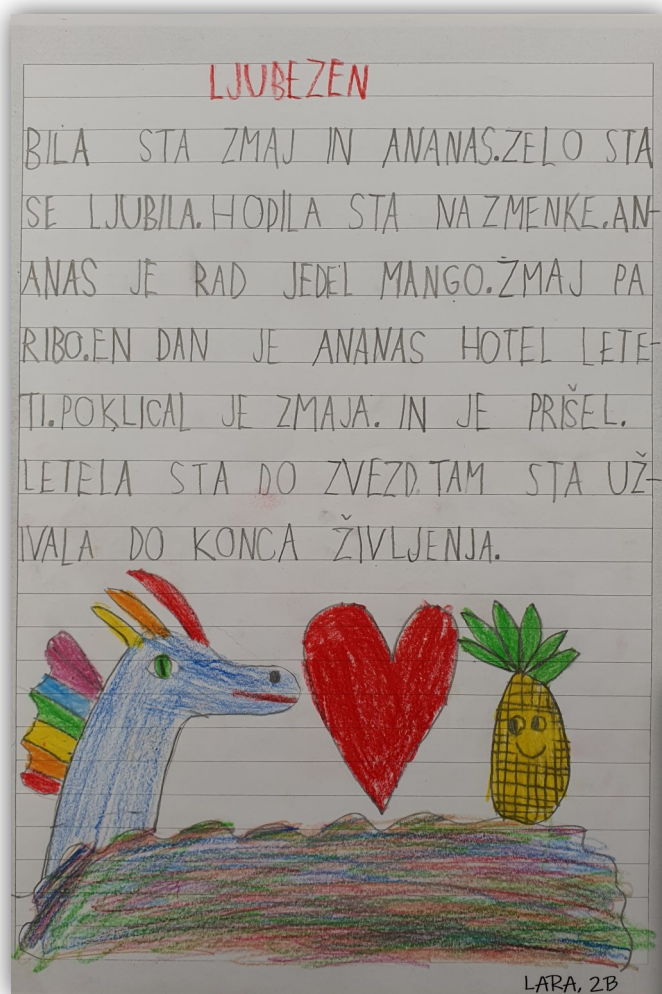 LJUBEZEN
BILA STA ZMAJ IN ANANAS.ZELO STA
SE LJUBILA.HODILA STA NA ZMENKE.AN-
ANAS JE RAD JEDEL MANGO.ZMAJ PA
RIBO.EN DAN JE ANANAS HOTEL LETE-
TI.POKLICAL JE ZMAJA. IN JE PRIŠEL.
LETELA STA DO ZVEZD.TAM STA UŽ-
IVALA DO KONCA ŽIVLJENJA.
LARA, 2B